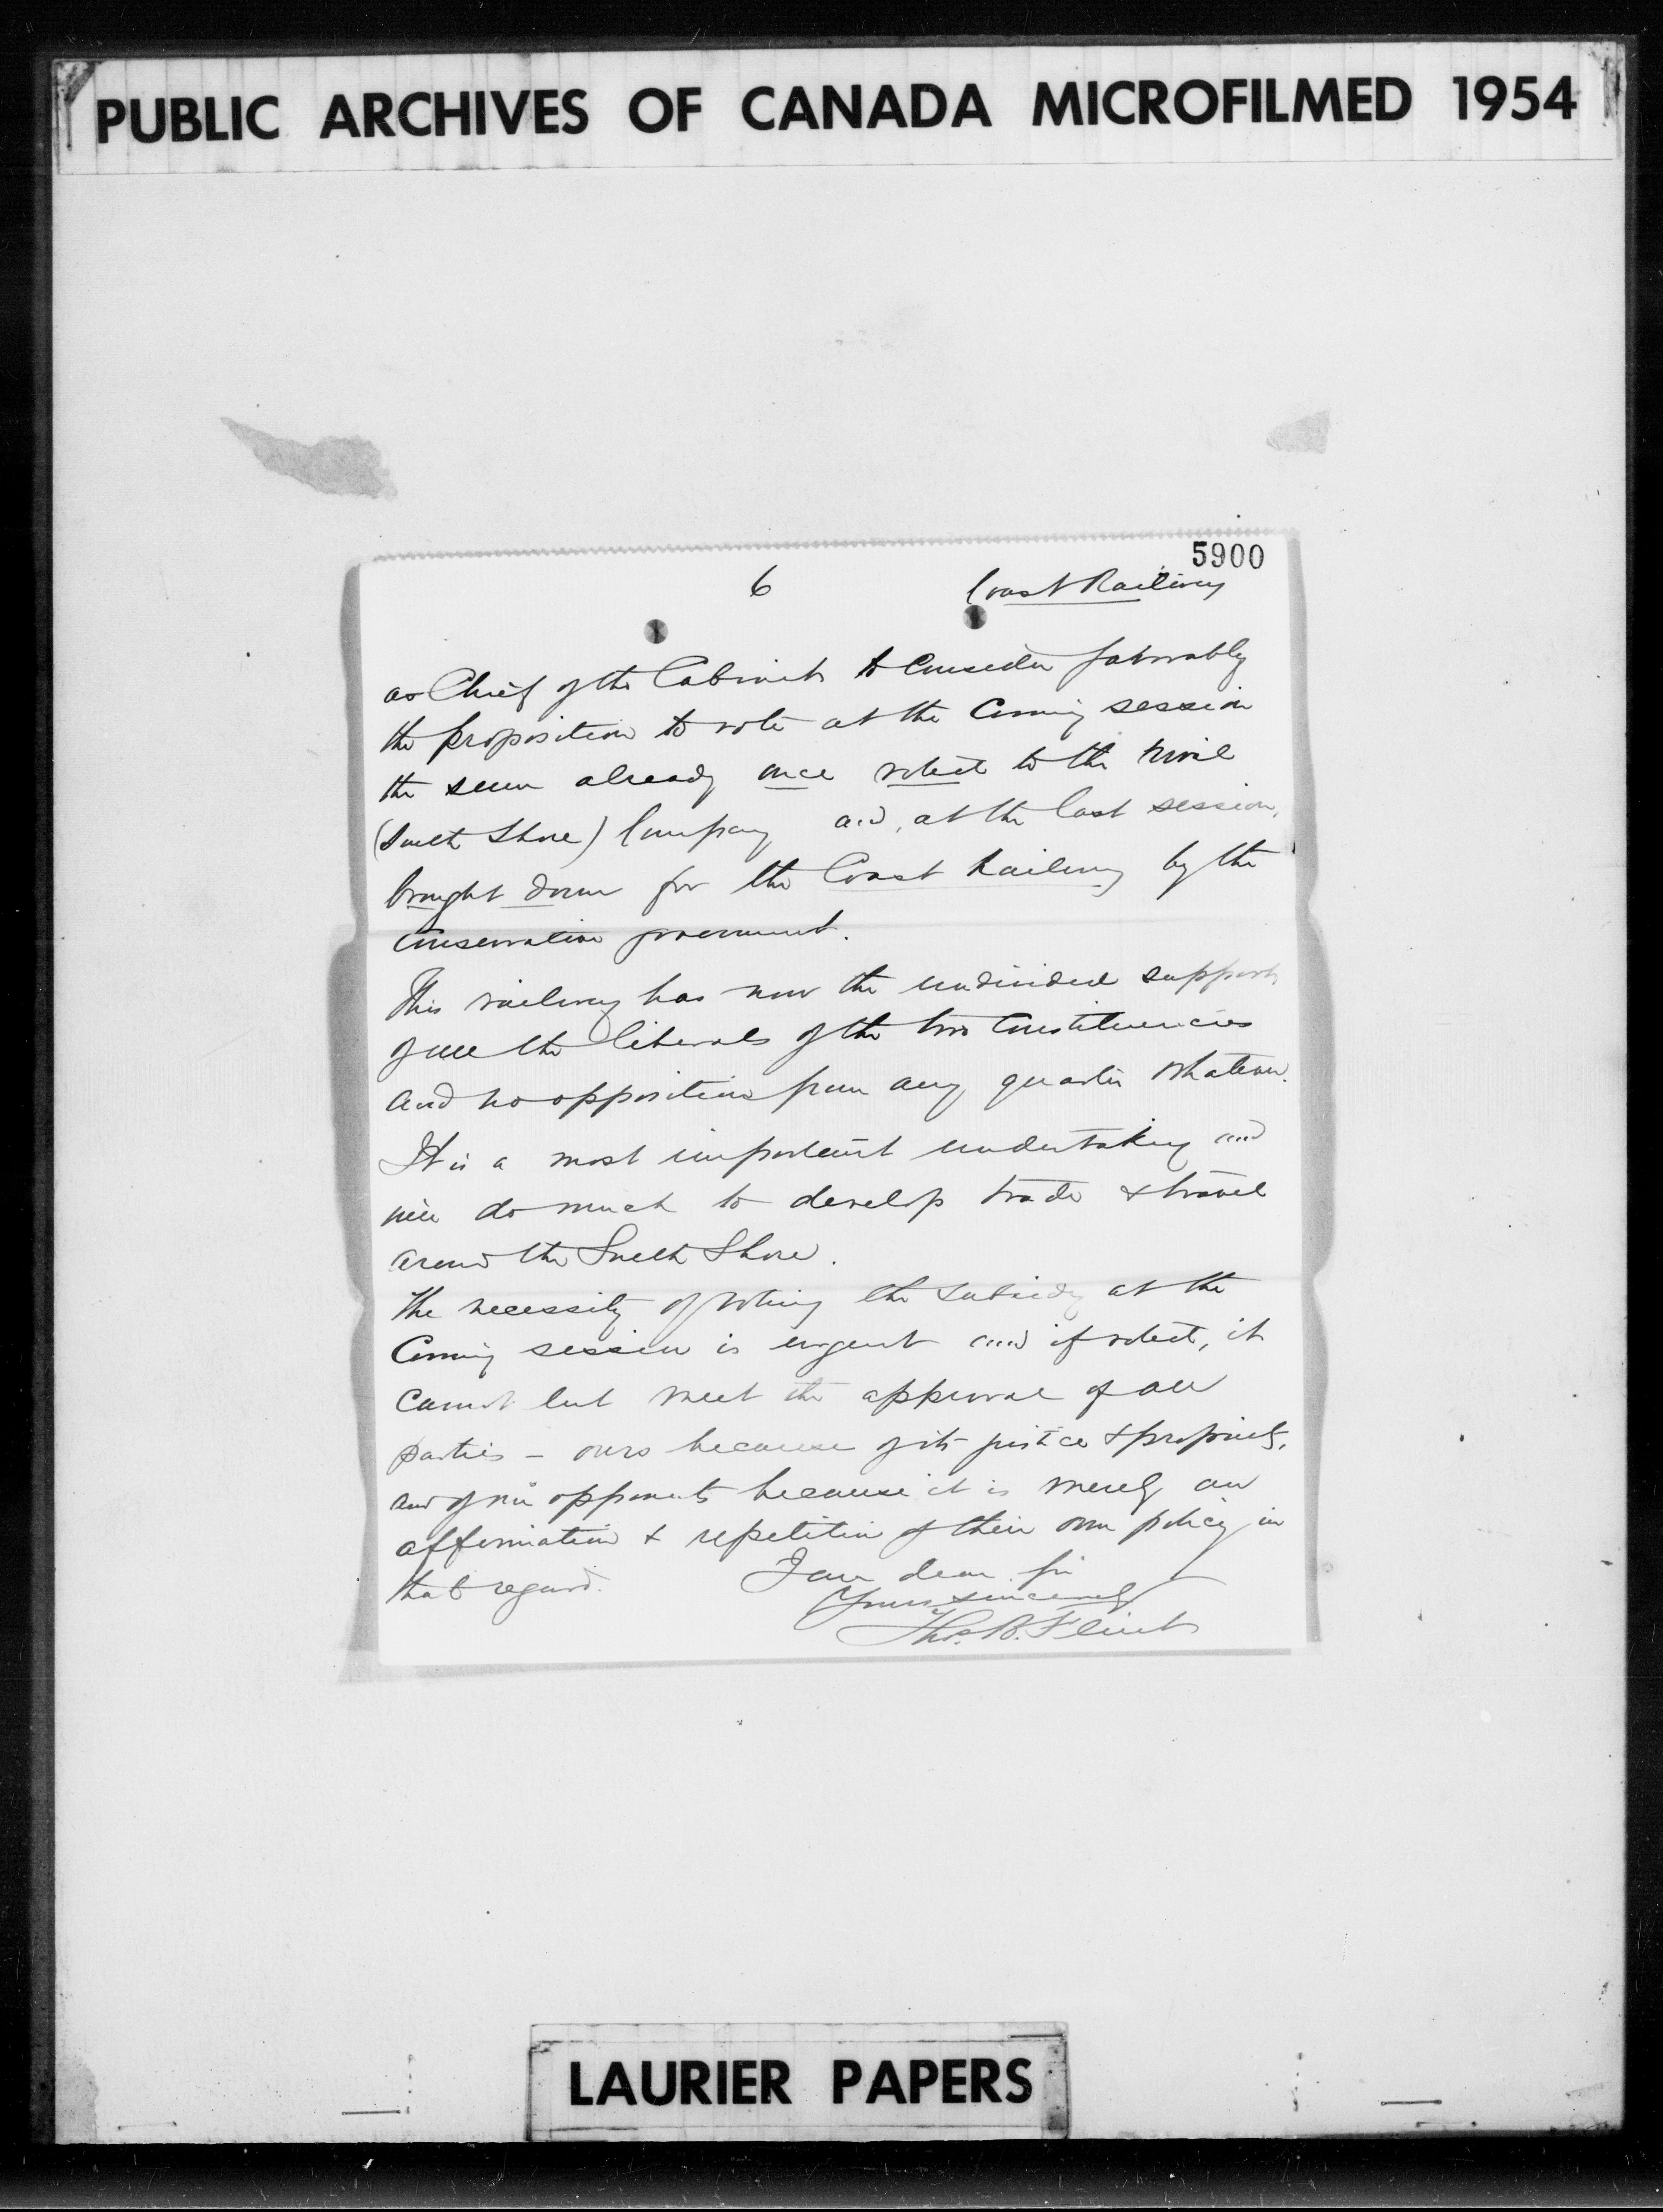 PUBLIC ARCHIVES OF CANADA MICROFILMED 1954
5900
6 Coast Railway
as Chief of the Cabinet to consider favorably
the proposition to vote at the coming session
the sum already once voted to the rival
(South Shore) Company and, at the last session,
brought down for the Coast Railway by the
conservative government.
This railway has now the undivided support
of all the liberals of the two constituencies
and no opposition from any quarter whatever.
It is a most important undertaking and
will do much to develop trade & travel
around the South Shore.
The necessity of voting the subsidy at the
coming session is urgent and if voted, it
cannot but meet the approval of all
parties - ours because of its justice & propriety,
and of our opponents because it is merely an
affirmation & repetition of their own policy in
that regard.
I am dear Sir
Yours sincerely
Thos. B. Flint
LAURIER PAPERS